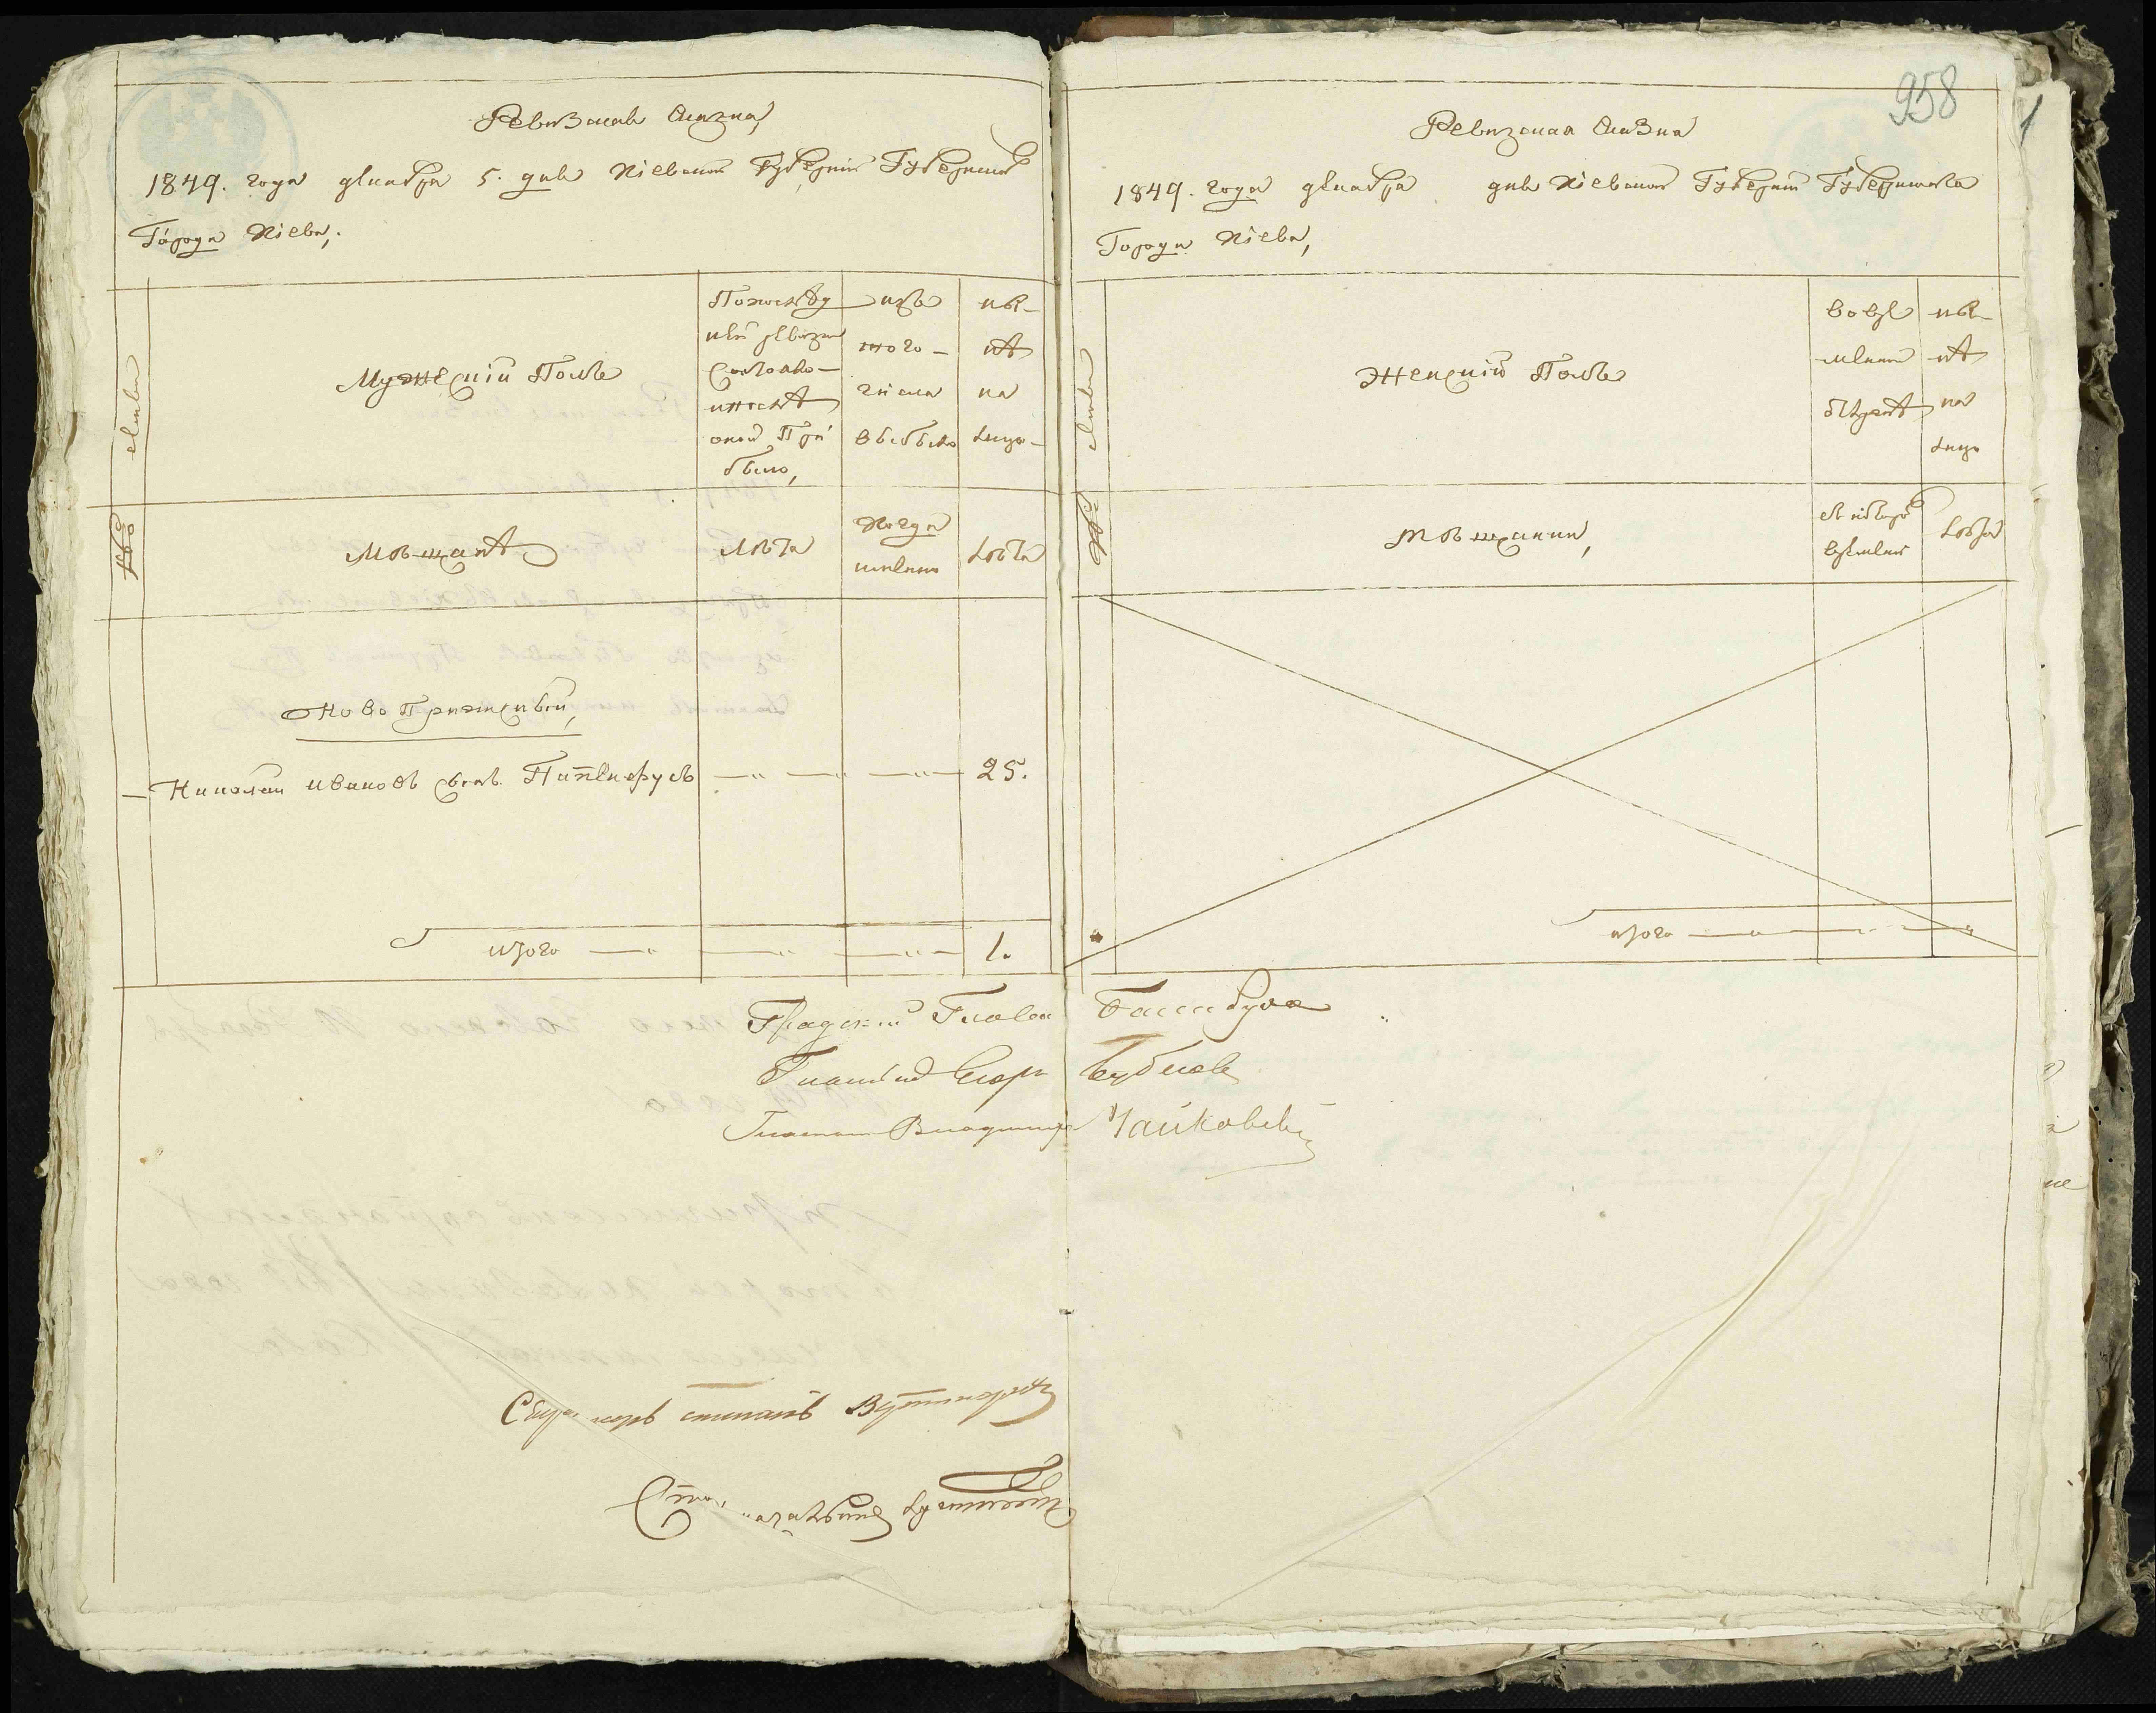 Ревизская Сказка
1849. года декабря 5. дня Кіевской Губерніи Губернскаго
Города Кіева,
семьи
Мужескій Полъ
По послѣд
ней ревизіи
Состояло
и послѣ
оной При
было,
изъ
того
числа
выбыло
ны-
нѣ
на
лицо
№
Мѣщанѣ
Лѣта
Когда
имянно
Лѣта
Ново Приписный,
Николай Ивановъ сынъ
25.
итого
1.
958
Ревизская Сказка
1849. года декабря дня Кіевской Губерніи Губернскаго
Города Кіева,
семьи
Женскій Полъ
Во вре
менной
отлучкѣ
ны-
нѣ
на
лицо
№
Мѣщанки,
Съ котораго
времени
Лѣта
итого
Градскій Глава
Гласный Егоръ Бубновъ
Гласный Владимиръ Чайковскій